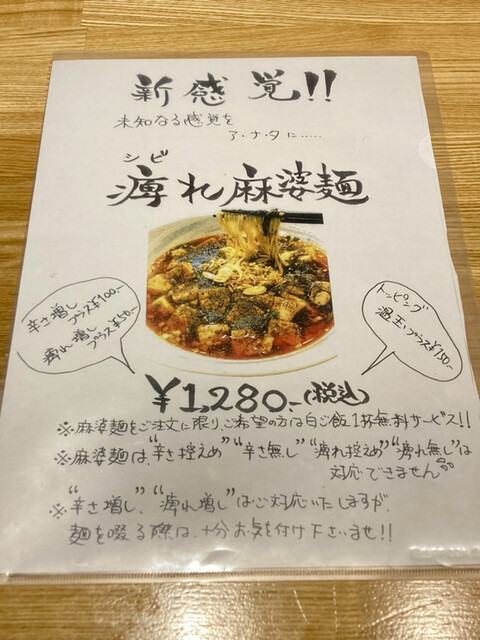 新感覚!!
未知なる感覚を
ア・ナ・タに……
シビ
痺れ麻婆麺
辛さ増し
プラス¥100-
痺れ増し
プラス¥50-
トッピング
温玉:プラス¥150-
¥1,280-(税込)
※麻婆麺をご注文に限り、ご希望の方は白ご飯1杯無料サービス!!
※麻婆麺は、“辛さ控えめ”“辛さ無し”“痺れ控えめ”“痺れ無し”は
対応できません。
※“辛さ増し”、“痺れ増し”はご対応いたしますが、
麺を啜る際は、十分お気を付け下さいませ!!